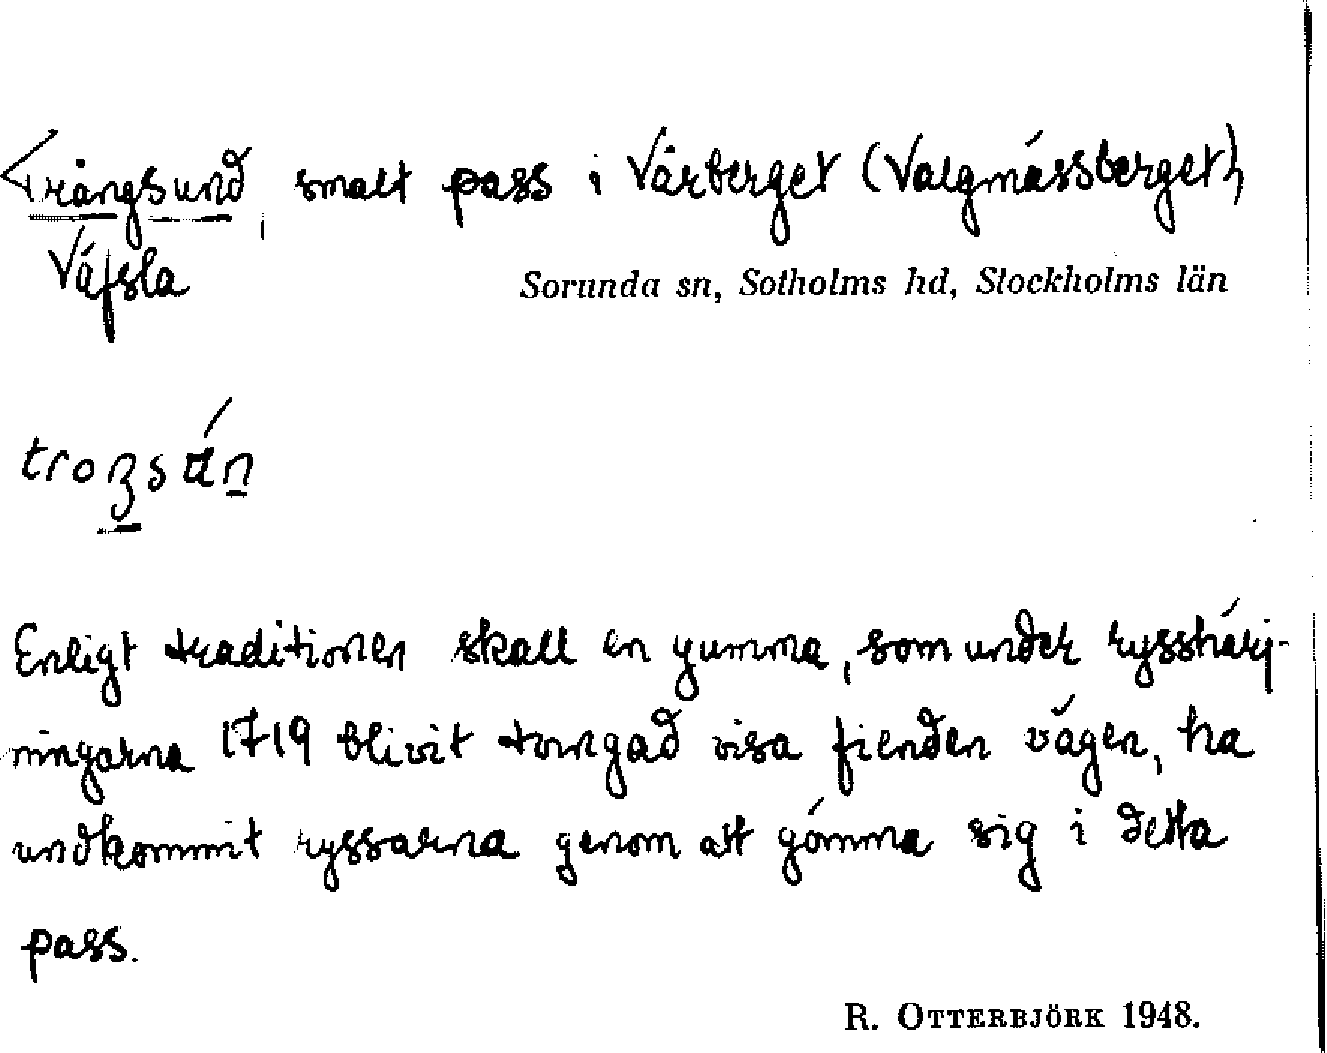 Trångsund, smalt pass i Vårberget (Valgmässberget),
Väfsla
Sorunda sn, Sotholms hd, Stockholms län
Enligt traditionen skall en gumma, som under ryssharj-
ningarna 1719 blivit tvingad visa fienden vägen, ha
undkommit ryssarna genom att gömma sig i detta
pass.
R. OTTERBJÖRK 1948.